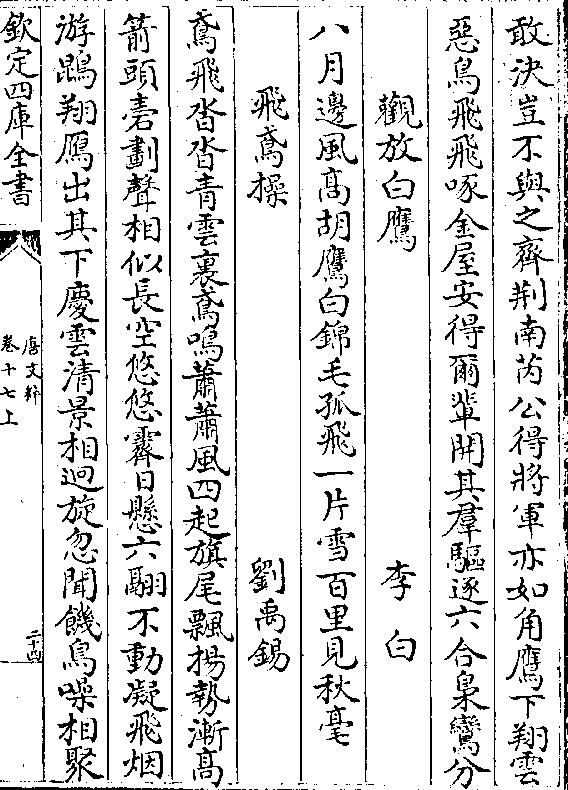 敢決豈不與之齊荆南芮公得將軍亦如角鷹下翔雲
惡鳥飛飛啄金屋安得爾輩開其羣驅逐六合梟鸞分
觀放白鷹 李白
八月邊風髙胡鷹白錦毛孤飛一片雪百里見秋毫
飛鳶操 劉禹錫
鳶飛沓沓青雲裏鳶鳴蕭蕭風四起旗尾飄揚勢漸髙
箭頭砉劃聲相似長空悠悠霽日懸六翮不動凝飛烟
游鵾翔鴈出其下慶雲清景相迴旋忽聞饑鳥噪相聚
欽定四庫全書
唐文粹
卷十七上
二十四